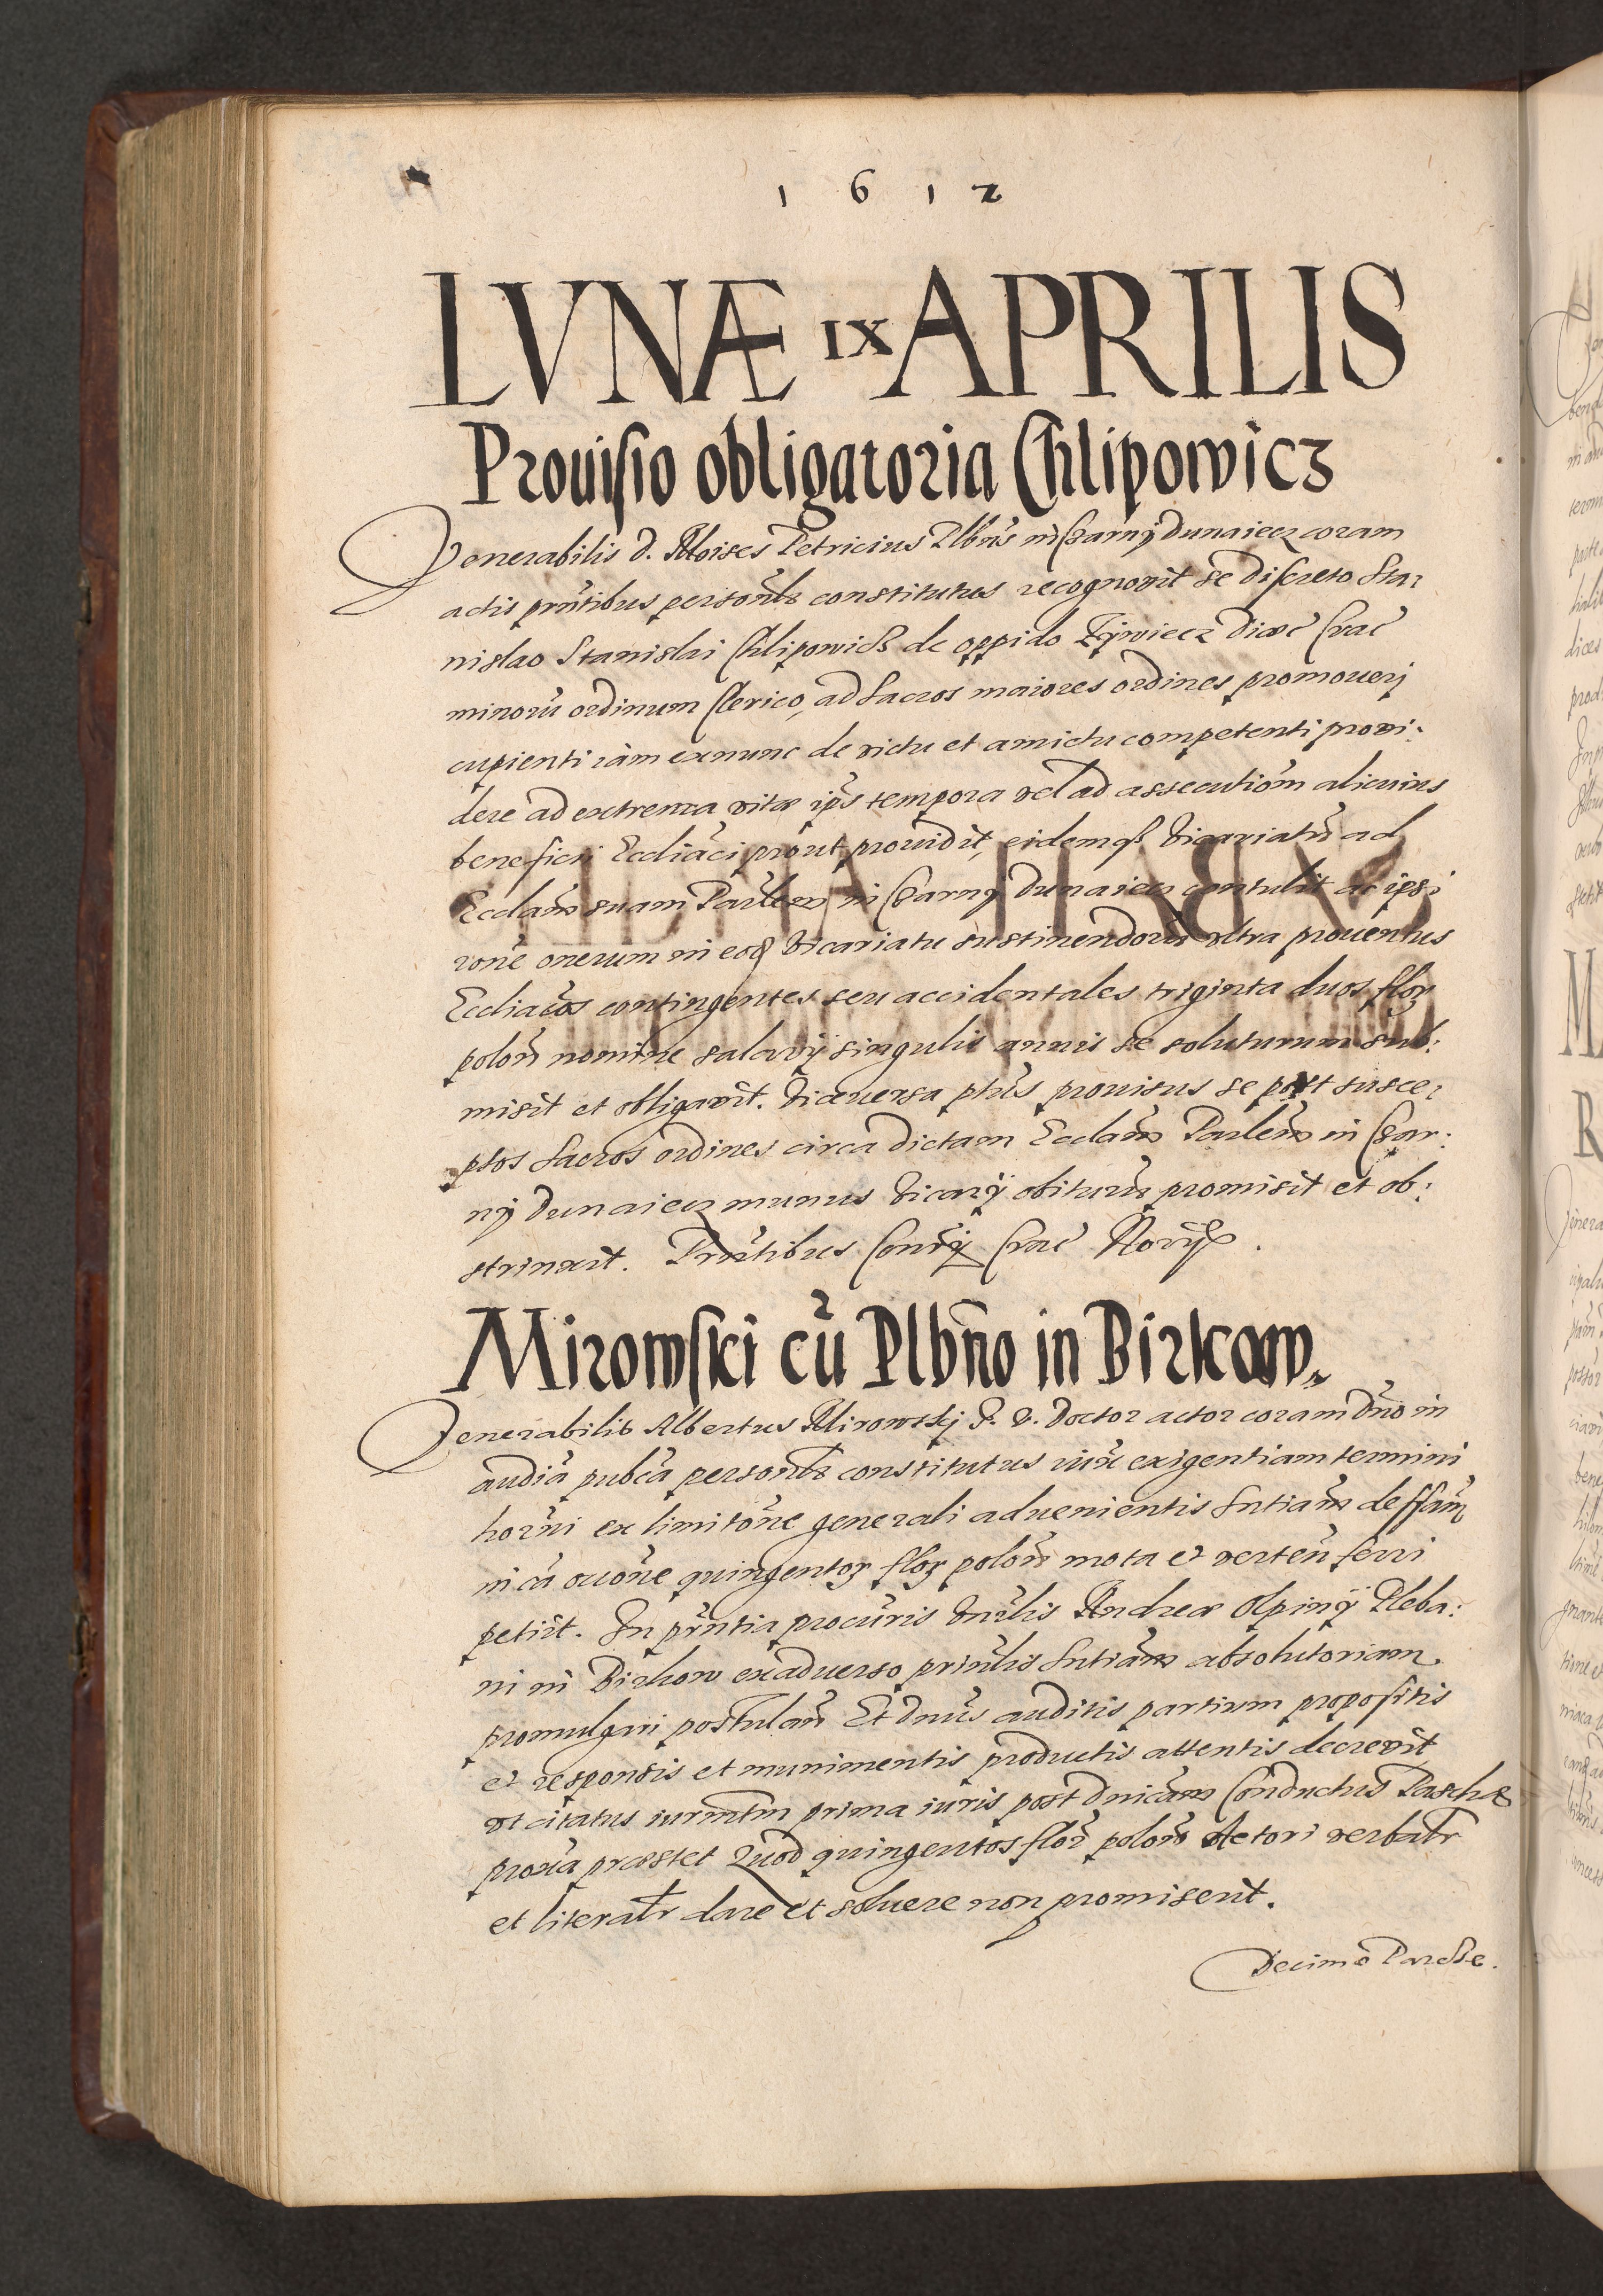 1612
LVNÆ IX APRILIS
Prouisio obligatoria Chlipowicz
Venerabilis d. Moises Petricius Plbñs in Czarny Dunaiecz coram
actis pr̃ntibus personl̃r constitutus recognovit se discreto Sta:
nislao Stanislai Chlipowicz de oppido Zÿwiecz Diœc̃ Crac̃
minorũ ordinum Clerico, ad sacros maiores ordines promoueri
cupienti iàm exnunc de victu et amictu competenti provi:
dere ad extrema vitæ ip̃s tempora vel ad assecutiõm alicuius
beneficii Ecclĩaci prout prouidit, eidemq3 Vicariatũ ad
Eccl̃am suam Parl̃em in Czarny Dunaiecz contulit ac ipsi
rõne onerum in eod̃ Vicariatu sustinendorũ vltra prouentus
Ecclĩacos contingentes seu accidentales triginta duos flor
polon̄ nomine salarÿ singulis annis se soluturum sub:
misit et obligavit. Viceuersa pñs prouisus se post susce:
ptos sacros ordines circa dictam Eccl̃am Parl̃em in Czar:
ny Dunaiecz munus Vicarÿ obiturũ promisit et ob:
strinxit. Pr̃ntibus Consr̃ÿ Crac̃ Norÿs.
Mirowski cũ Plbño in Birkow.
Venerabilis Albertus Mirowskj P. V. Doctor actor coram Dño in
audĩa pub̃ca personl̃r constitutus iuxĩ exigentiam termini
hor̃ni ex limitõne generali aduenientis sñtiam deffam̃
in cã occõne quingentor flor polon̄ mota et verteñ ferri
petiit. In pr̃ntia procuris Vnr̃lis Andreæ Olpinÿ Pleba:
ni in Birkow exaduerso prinl̃is sñtiam absolutoriam
promulgari postulañ Et Dnũs auditis partium propositis
et responsis et munimentis productis attentis decrevit
vt citatus iurm̃tm prima iuris post Dnicam Conductus Paschæ
proxã præstet Quod quingentos flor̃ polon̄ Actori verbal̃r
et literal̃r dare et soluere non promiserit.